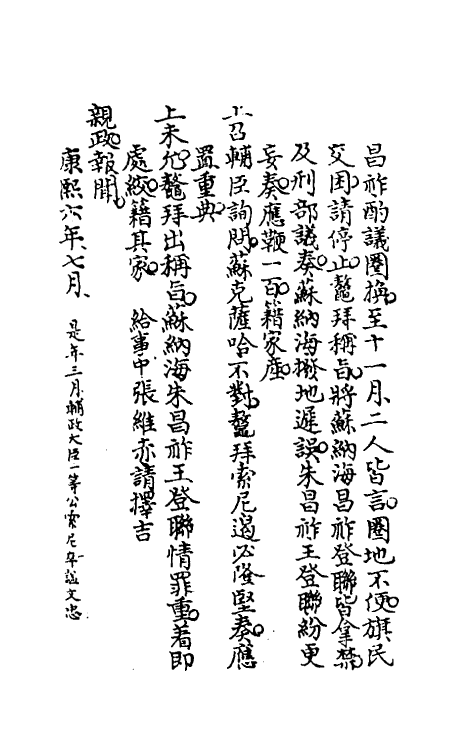 昌祚酌議圈換。至十一月、二人皆言。圈地不便。旗民
交困。請停止。鼇拜稱旨。將蘇納海昌祚登聯皆拿禁。
及刑部議奏。蘇納海撥地遲誤。朱昌祚王登聯紛更
妄奏。應鞭一百。籍家產。
上召輔臣詢問。蘇克薩哈不對。鼇拜索尼遏必隆堅奏。應
置重典。
上未允。鼇拜出稱旨。蘇納海朱昌祚王登聯情罪重。着即
處絞。籍其家。 給事中張維赤請擇吉
親政。報聞。
康熙六年、七月、 是年三月輔政大臣一等公索尼卒謚文忠